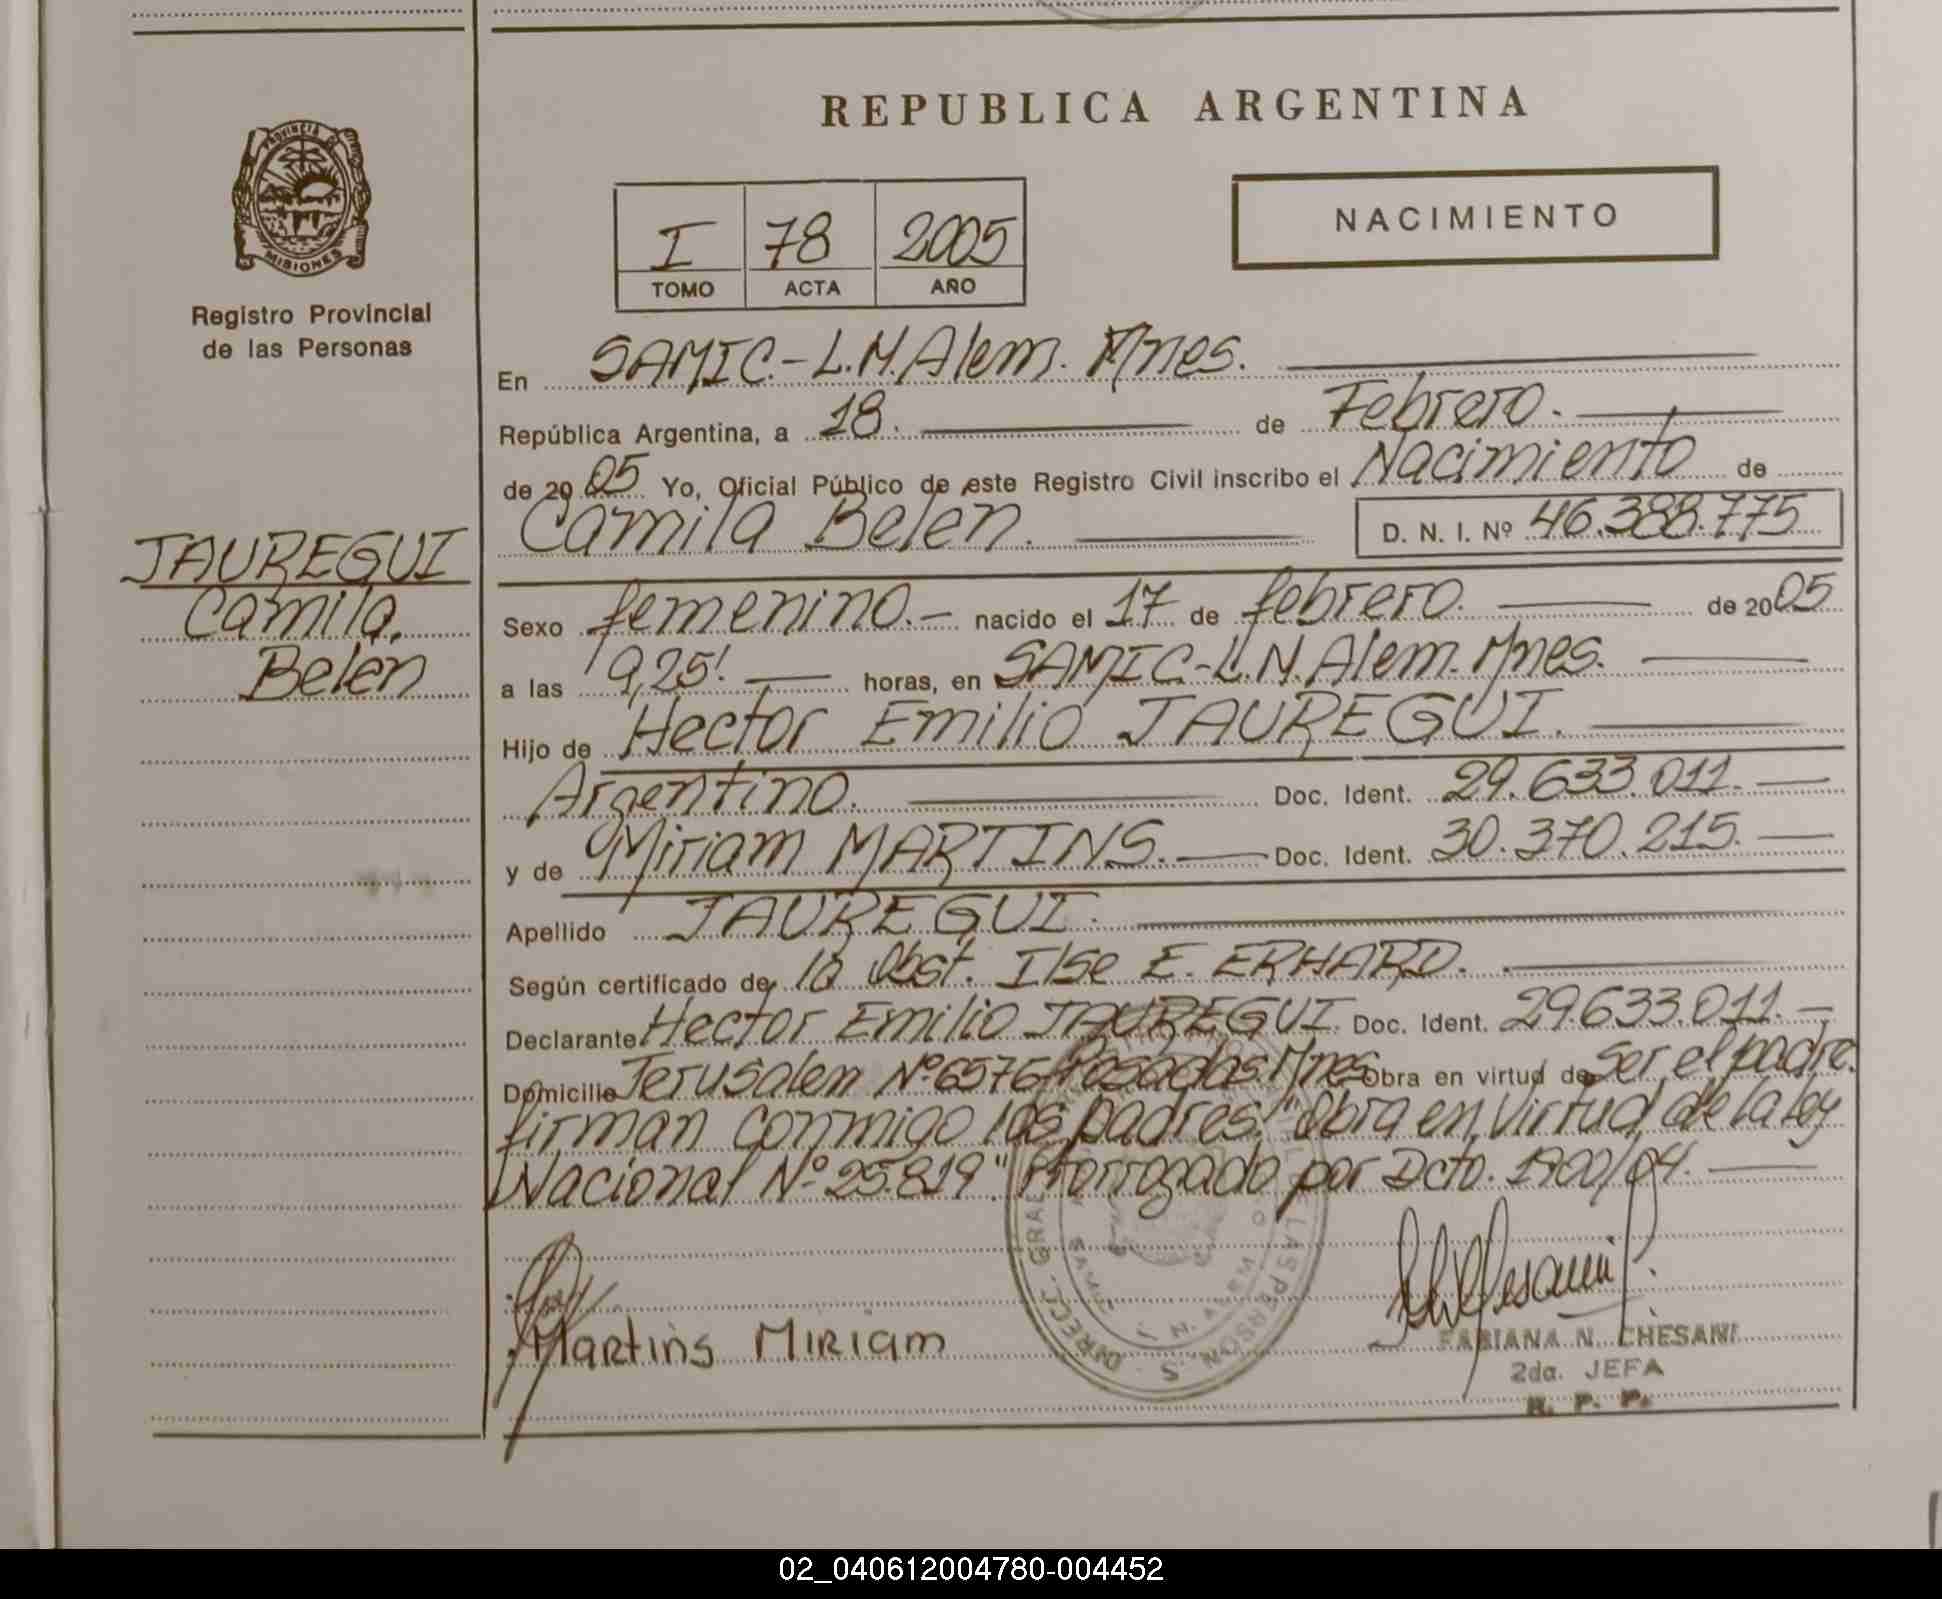 REPUBLICA ARGENTINA
PROVINCIA DE
MISIONES
Registro Provincial
de las Personas
NACIMIENTO
I 78 2005
TOMO ACTA AÑO
JAUREGUI
Camila,
Belen
En SAMIC.-L.N.Alem. Mnes.
República Argentina, a 18. de Febrero.
de 2005 Yo, Oficial Público de este Registro Civil inscribo el Nacimiento de
Camila Belen. D. N. I. Nº 46.388.775
Sexo femenino.- nacido el 17 de febrero. de 2005
a las 9,25' horas, en SAMIC-L.N.Alem.Mnes.
Hijo de Hector Emilio JAUREGUI.
Argentino. Doc. Ident. 29.633.011.
y de Miriam MARTINS. Doc. Ident. 30.370.215.
Apellido JAUREGUI.
Según certificado de la Obst. Ilse E. ERHARD.
Declarante Hector Emilio JAUREGUI. Doc. Ident. 29.633.011.-
Domicilio Jerusalen Nº6576 Posadas Mnes Obra en virtud de ser el padre.
firman conmigo los padres. "Obra en Virtud de la Ley
Nacional Nº 25.819" Prorrogado por Dcto. 1900/04.
Martins Miriam
FABIANA N. CHESANI
2da. JEFA
R. P. P.
02_040612004780-004452